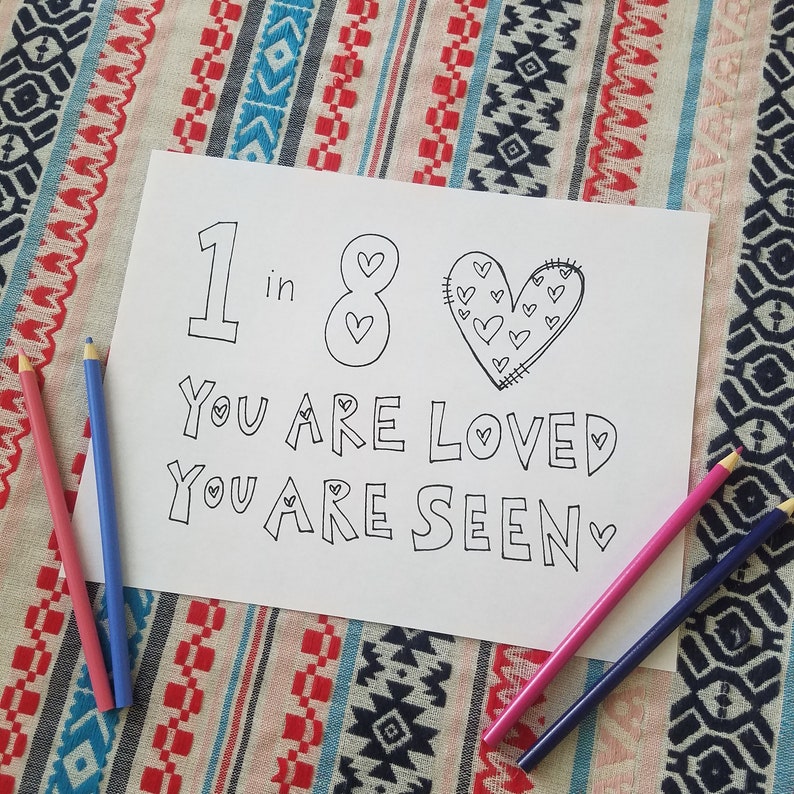 1 in 8
YOU ARE LOVED
YOU ARE SEEN